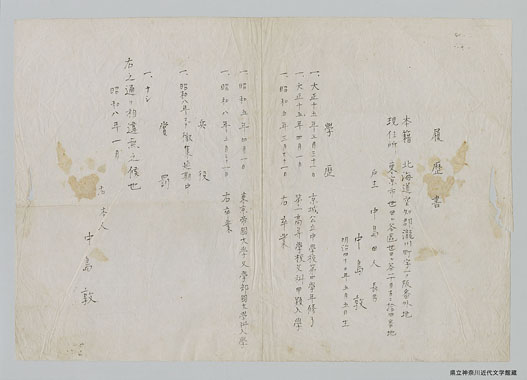 履歴書
本籍 北海道空知郡瀧川町字一ノ坂番外地
現住所 東京市世田谷区世田谷
戸主 中島田人 長男
中島敦
明治四十二年五月五日生
学歴
一、大正十五年三月三十一日 京城公立中学校第四学年修了
一、大正十五年四月一日 第一高等学校文科甲類入学
一、昭和五年三月三十一日 右卒業
一、昭和五年四月一日 東京帝国大学文学部国文学科入学
一、昭和八年三月三十一日 右卒業
兵役
一、昭和八年マデ徴集延期中
賞罰
一、ナシ
右之通り相違無之候也
昭和八年一月
右本人 中島敦
県立神奈川近代文学館蔵